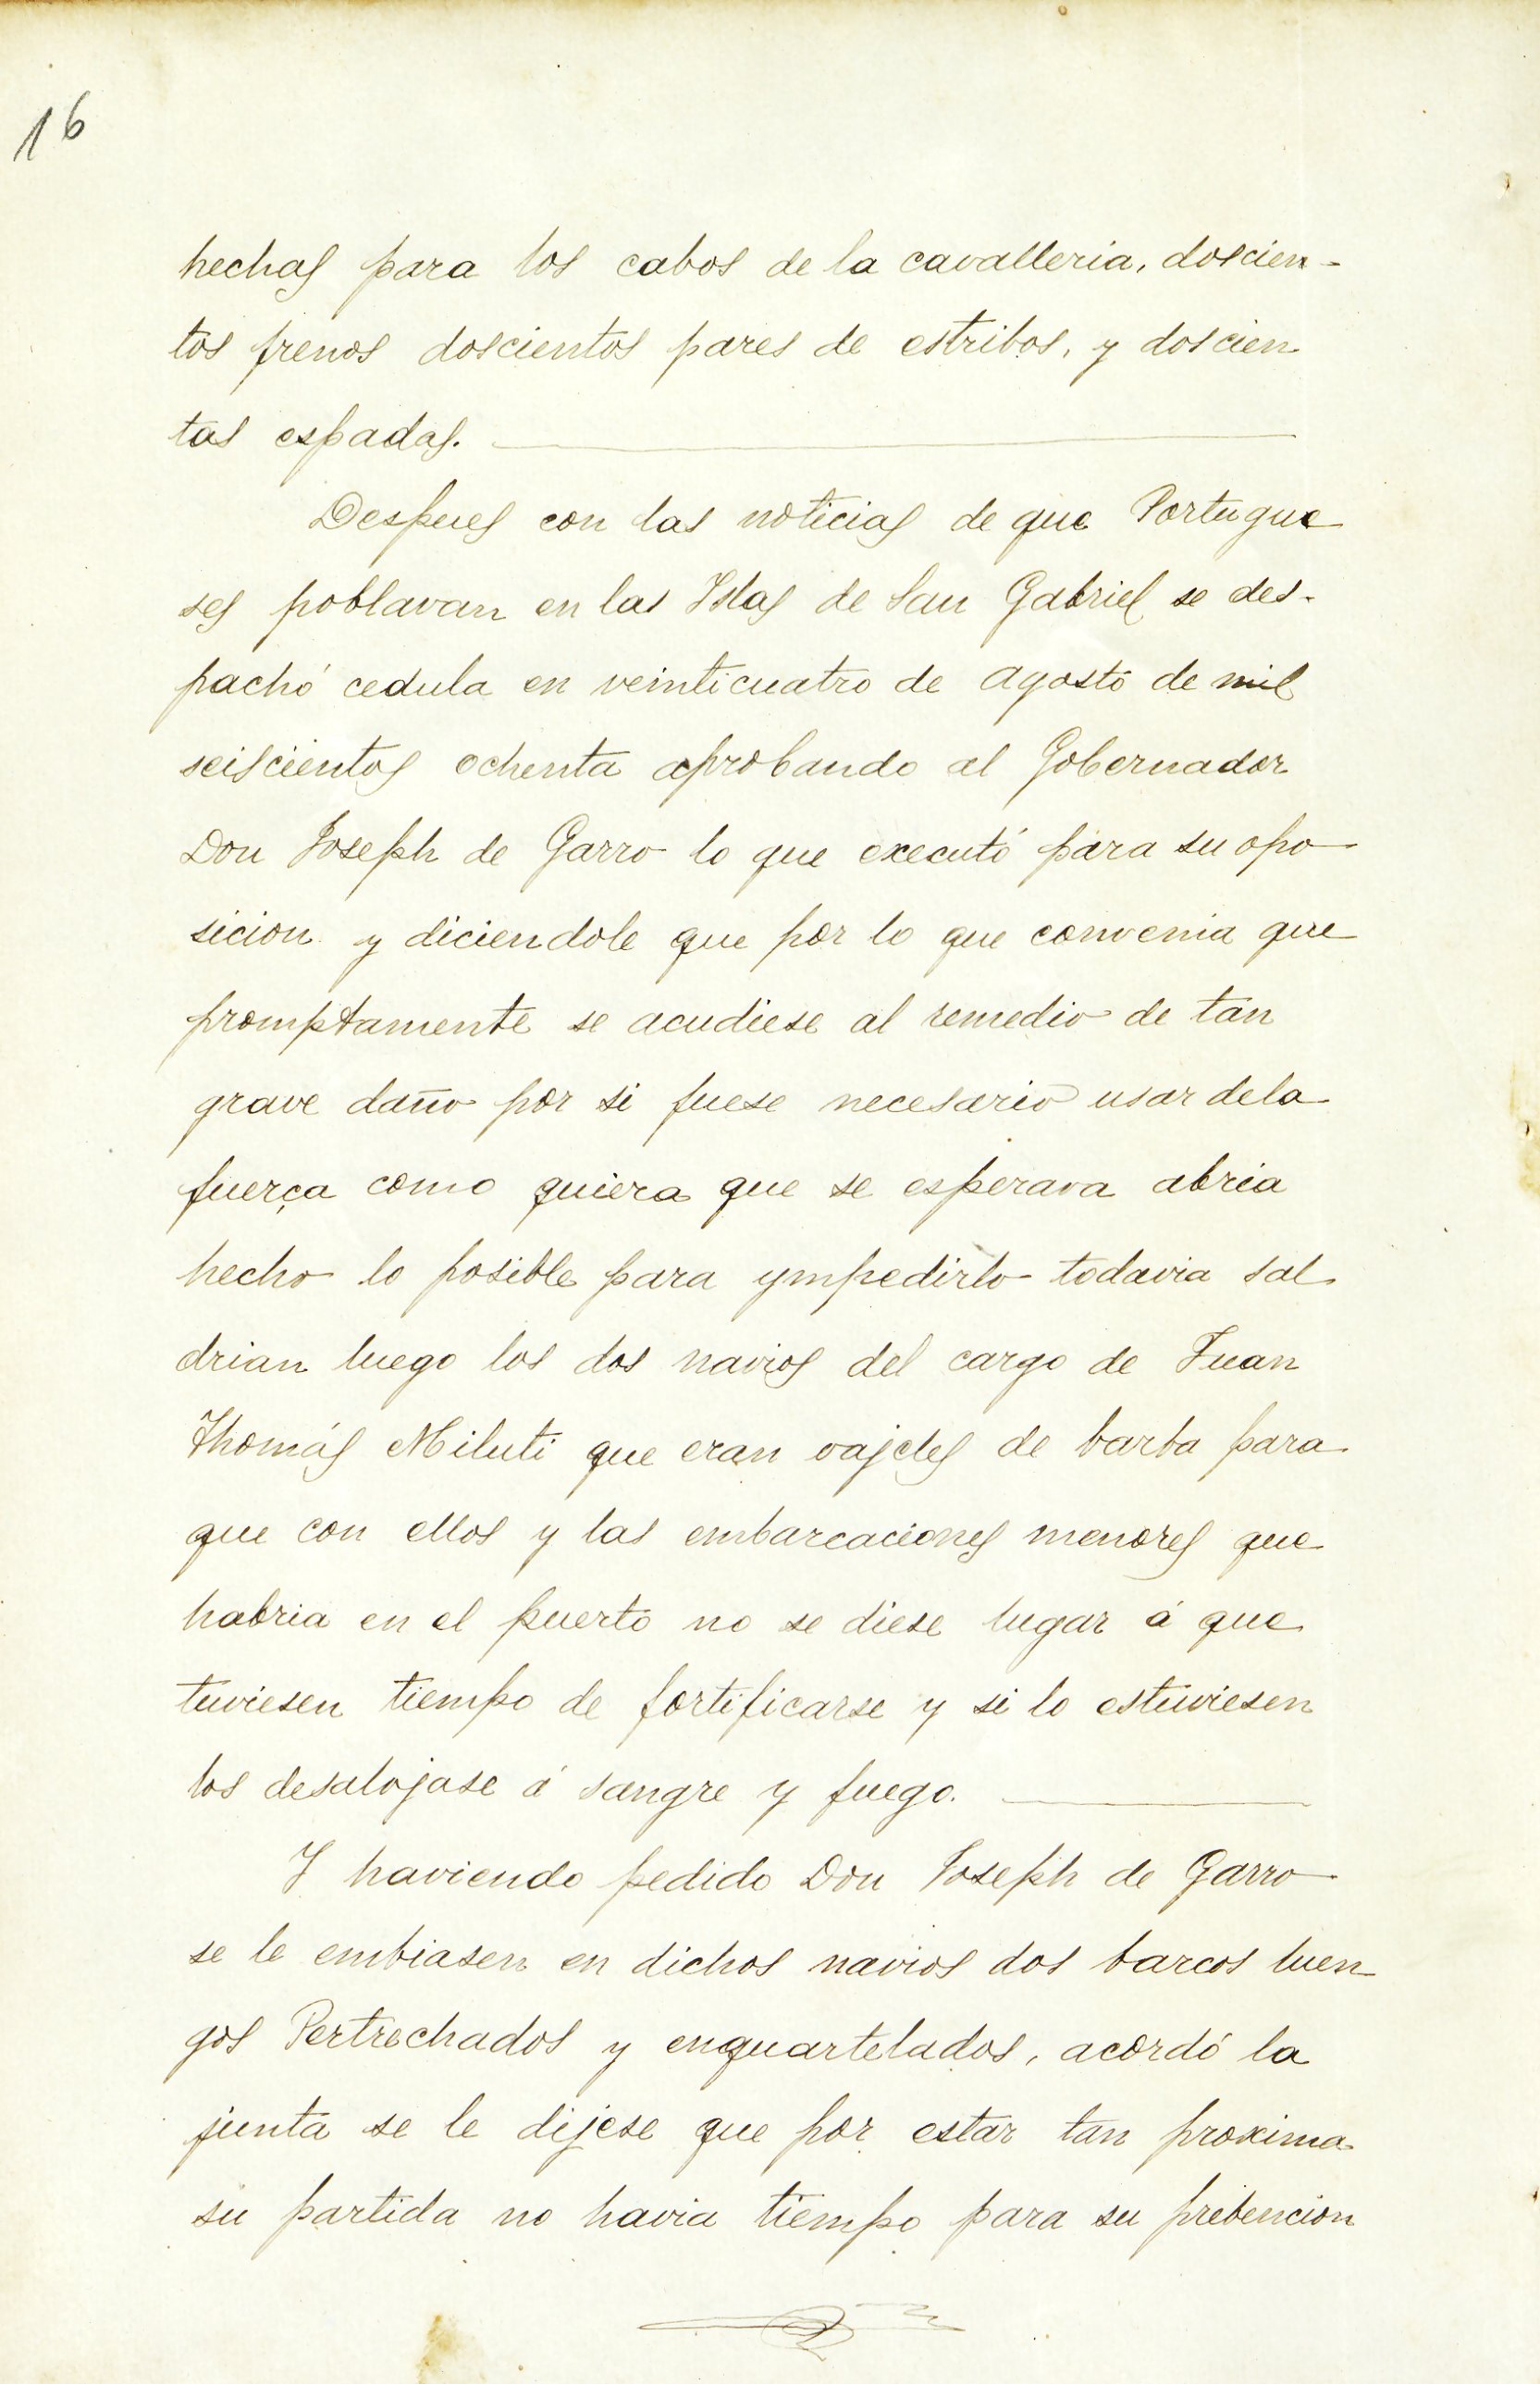 16
hechas para los cabos de la cavalleria, doscien-
tos frenos doscientos pares de estribos, y doscien
tas espadas.
Despues con las noticias de que Portugue
ses poblavan en las Islas de San Gabriel se des-
pachó cedula en veinticuatro de agosto de mil
seiscientos ochenta aprobando al Gobernador
Don Joseph de Garro lo que executó para su opo
sicion y diciendole que por lo que convenia que
promptamente se acudiese al remedio de tan
grave daño por si fuese necesario usar dela
fuerça como quiera que se esperava abria
hecho lo posible para ympedirlo todavia sal
drian luego los dos navios del cargo de Juan
Thomás Miluti que eran vajeles de barba para
que con ellos y las embarcaciones menores que
habria en el puerto no se diese lugar á que
tuviesen tiempo de fortificarse y si lo estuviesen
los desalojase á sangre y fuego.
Y haviendo pedido Don Joseph de Garro
se le embiasen en dichos navios dos barcos luen
gos Pertrechados y enquartelados, acordó la
junta se le dijese que por estar tan proxima
su partida no havia tiempo para su prebencion